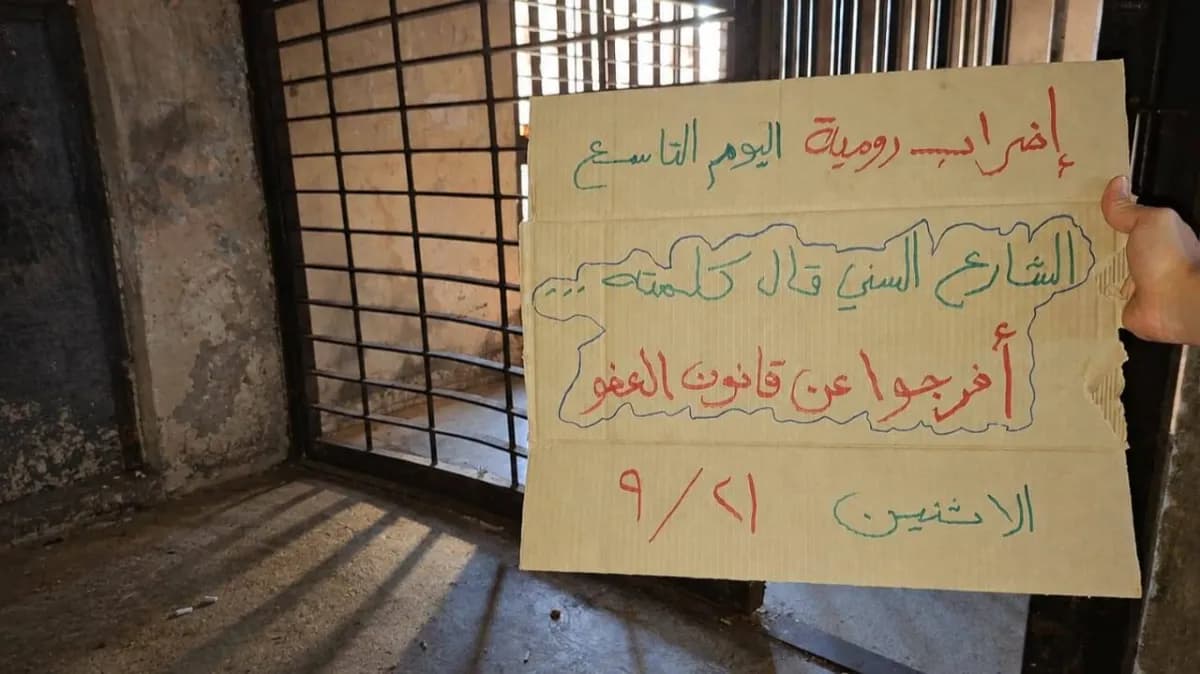 إضراب رومية اليوم التاسع
الشارع السني قال كلمته ...
أفرجوا عن قانون العفو
الاثنين ٢١/٩